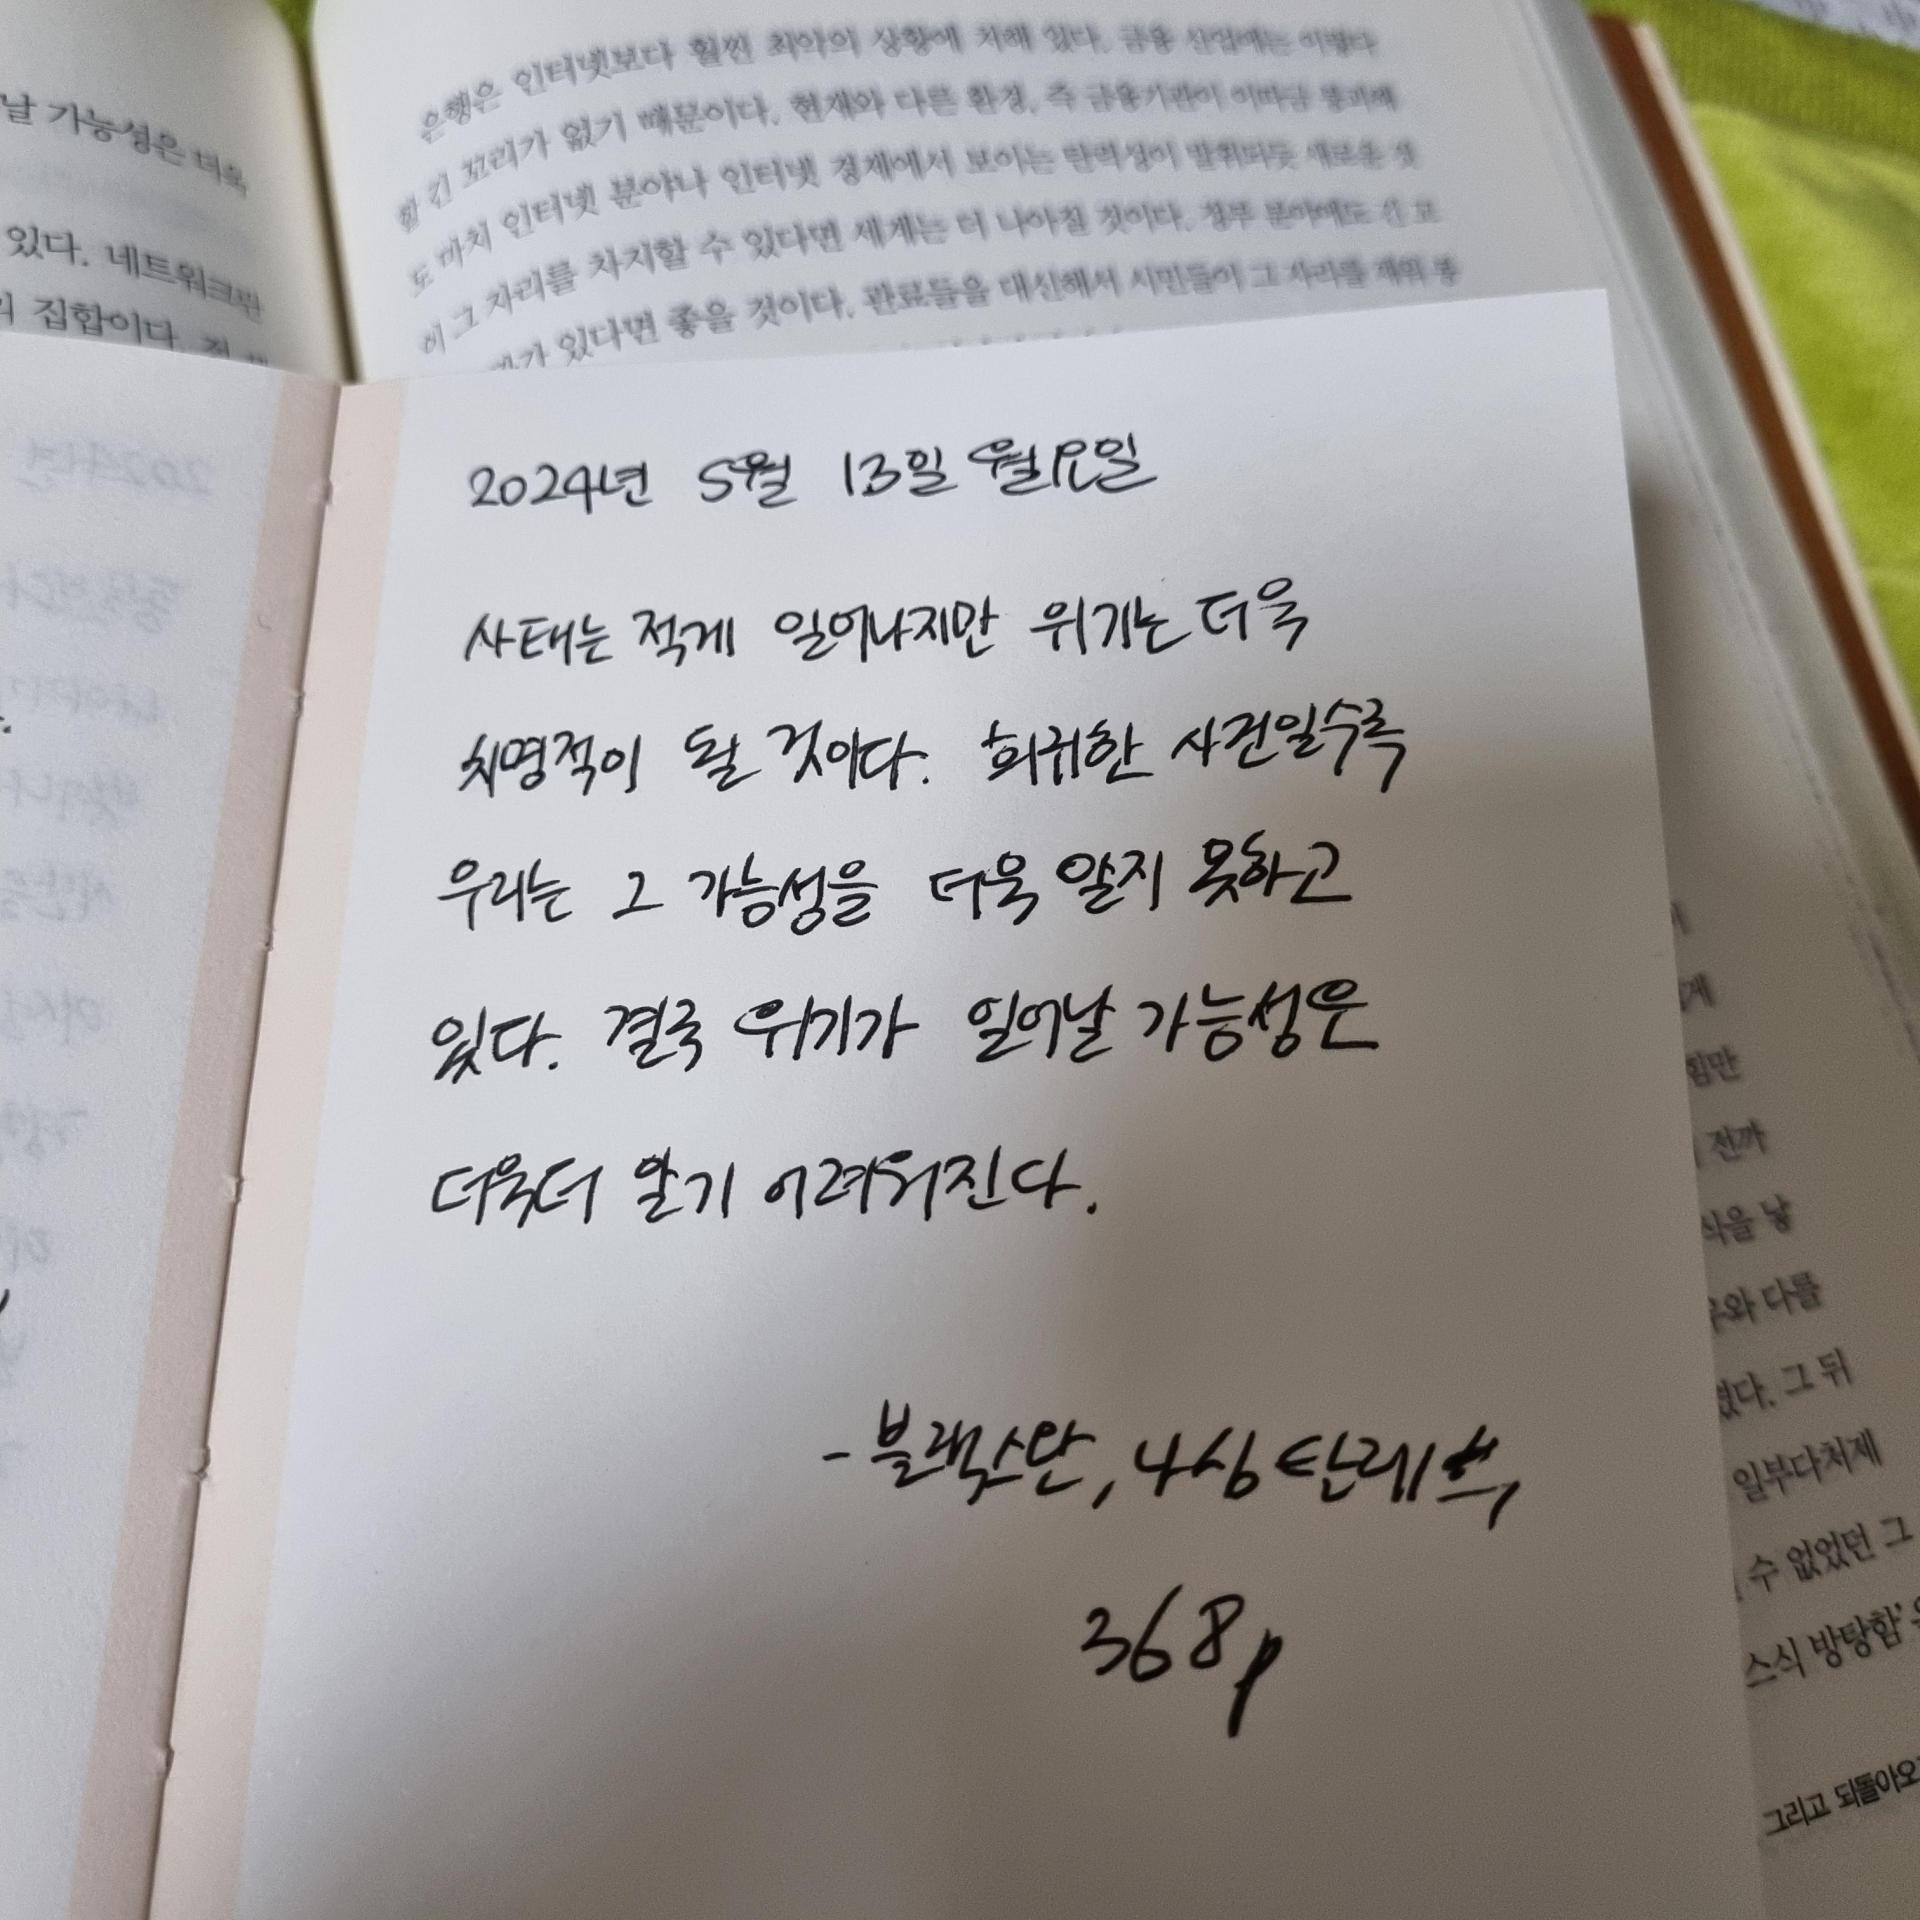 날 가능성은 더욱
있다. 네트워크란
집합이다.
은행은 인터넷보다 훨씬 최악의 상황에 처해 있다. 금융 산업에는 이렇다
할 긴 꼬리가 없기 때문이다. 현재와 다른 환경, 즉 금융기관이 이따금 붕괴해
도 마치 인터넷 분야나 인터넷 경제에서 보이는 탄력성이 발휘되듯 새로운 것
이 그 자리를 차지할 수 있다면 세계는 더 나아질 것이다. 정부 분야에도 긴 꼬
가 있다면 좋을 것이다. 관료들을 대신해서 시민들이 그 자리를 채워
2024년 5월 13일 월요일
사태는 적게 일어나지만 위기는 더욱
치명적이 될 것이다. 희귀한 사건일수록
우리는 그 가능성을 더욱 알지 못하고
있다. 결국 위기가 일어날 가능성은
더욱더 알기 어려워진다.
- 블랙스완, 나심 탄레브,
368p
게
힘만
전까
식을 낳
와 다를
였다. 그 뒤
일부다처제
수 없었던 그
스식 방탕함'
그리고 되돌아오